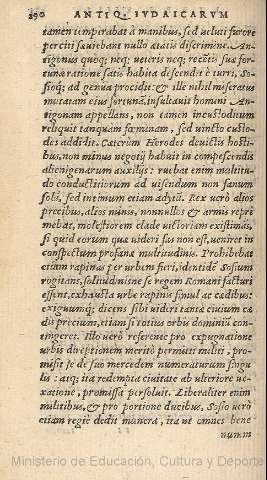 290 ANTIQ. IVDAICARVM
tamen temperabat à manibus, sed veluti furore
perciti sæuiebant nullo ætatis discrimine. An-
tigonus quoq; neq; veteris neq; recētis suæ for-
tunæ ratione satis habita descendit è turri, So-
sioq; ad genua procidit: & ille nihil miseratus
mutatam eius fortunā, insultauit homini An-
tigonam appellans, non tamen incustoditum
reliquit tanquam fœminam, sed vincto custo-
des addidit. Cæterum Herodes deuictis hosti-
bus, non minus negotij habuit in compescendis
alienigenarum auxilijs: ruebat enim multitu-
do conductitiorum ad visendum non fanum
solū, sed intimum etiam adytū. Rex verò alios
precibus, alios minis, nonnullos & armis repri
mebat, molestiorem clade victoriam existimās,
si quid eorum quæ videri fas non est, veniret in
conspectum profanæ multitudinis. Prohibebat
etiam rapinas per vrbem fieri, idētidē Sosium
rogitans, solitudinisne se regem Romani facturi
essent, exhausta vrbe rapinis simul ac cædibus:
exiguumq; dicens sibi videri tantæ ciuium cæ
dis precium, etiam si totius orbis dominiū con-
tingeret. Illo verò referente pro expugnatione
vrbis direptionem meritò permitti militi, pro-
misit se de suo mercedem numeraturum singu
lis: atq; ita redempta ciuitate ab vlteriore ve-
xatione, promissa persoluit. Liberaliter enim
militibus, & pro portione ducibus, Sosio verò
etiam regiè dedit munera, ita vt omnes bene
num m
Ministerio de Educación, Cultura y Deporte